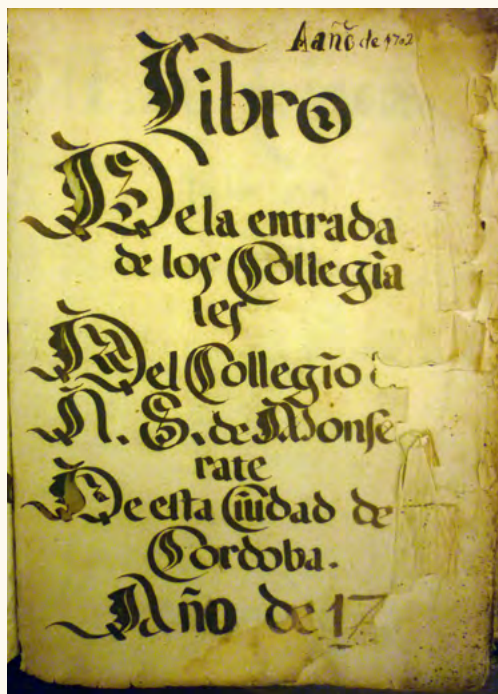 Aañõ de 1702
Libro
De la entrada
de los Collegia
les
Del Collegio
N. S. de Monse
rate
De esta Ciudad de
Cordoba.
Año de 17